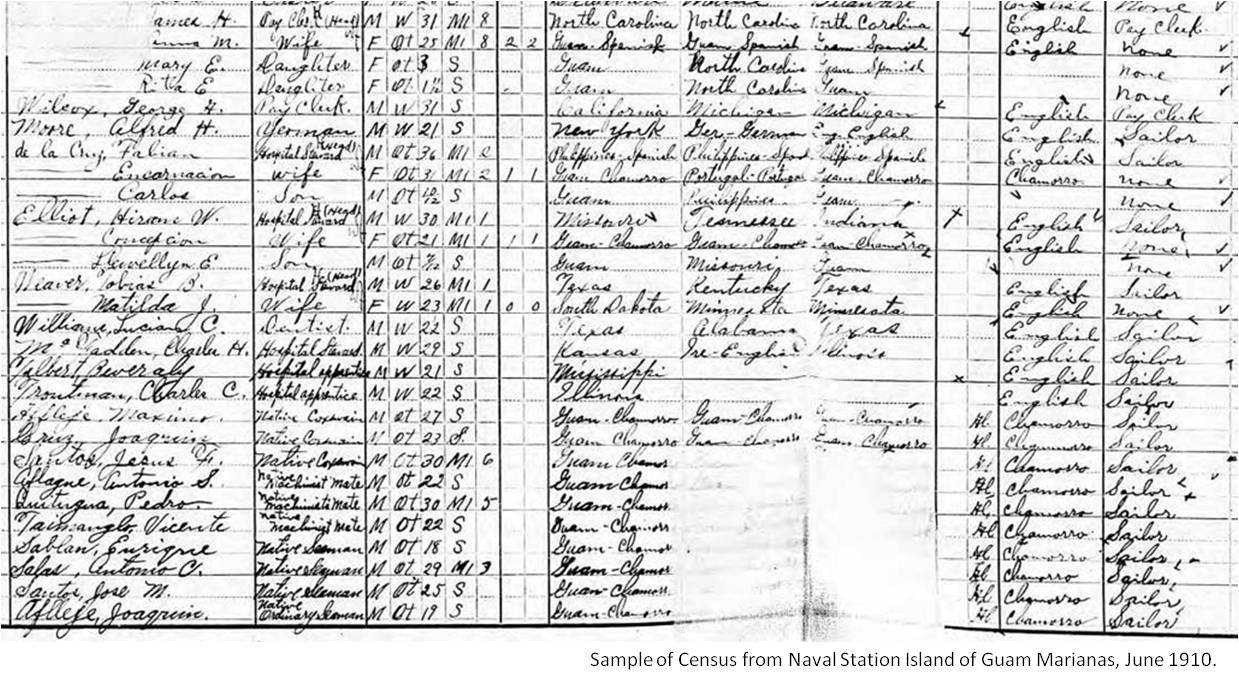 James H. Pay Clk. (Head) M W 31 M1 8 North Carolina North Carolina North Carolina English Pay Clerk
M. Wife F Ot 25 M1 8 2 2 Guam-Spanish Guam Spanish Guam-Spanish English None
Mary E. Daughter F Ot 3 S Guam North Carolina Guam-Spanish none
Rita E Daughter F Ot 1½ S Guam North Carolina Guam None
Wilcox, George H. Pay Clerk. M W 31 S California Michigan Michigan English Pay Clerk
Moore, Alfred H. Yeoman M W 21 S New York Ger-German Eng. English English Sailor
de la Cruz, Fabian Hospital Steward (Head) M Ot 36 M1 2 Philippines-Spanish Philippines-Span Philippines-Spanish English Sailor
Encarnacion Wife F Ot 31 M1 2 1 1 Guam Chamorro Portugal-Portugue Guam-Chamorro Chamorro none
Carlos Son M Ot S Guam Philippines Guam none
Elliot, Hiram W. Hospital Steward (Head) M W 30 M1 1 Missouri Tennessee Indiana English Sailor
Concepcion Wife F Ot 21 M1 1 1 1 Guam-Chamorro Guam-Chamor Guam-Chamorro English None
Llewellyn E Son M Ot S Guam Missouri Guam none
Weaver, Tobias D. Hospital Steward (Head) M W 26 M1 1 Texas Kentucky Texas English Sailor
Matilda J. Wife F W 23 M1 1 0 0 South Dakota Minnesota Minnesota English none
Williams, Lucian C. Dentist. M W 22 S Texas Alabama Texas English Sailor
McFadden, Charles H. Hospital Steward M W 29 S Kansas Ire-English Illinois English Sailor
Beverely Hospital apprentice M W 21 S Mississippi English Sailor
Troutman, Charles C. Hospital apprentice M W 22 S Illinois English Sailor
Aflleje Maximo. Native Coxswain M Ot 27 S Guam-Chamorro Guam-Chamorro Guam-Chamorro Al Chamorro Sailor
Cruz, Joaquin Native Coxswain M Ot 23 S. Guam Chamorro Guam-Chamorro Guam-Chamorro Al Chamorro Sailor
Santos, Jesus F. Native Coxswain M Ot 30 M1 6 Guam Chamor Al Chamorro Sailor
Aflague, Antonio S. Native Machinist Mate M Ot 22 S Guam Chamor Al Chamorro Sailor
Quitugua, Pedro. Native Machinists Mate M Ot 30 M1 5 Guam-Chamor Al Chamorro Sailor
Taimanglo Vicente Native Machinist Mate M Ot 22 S Guam-Chamorr Al Chamorro Sailor
Sablan, Enrique Native Seaman M Ot 18 S Guam-Chamor Al Chamorro Sailor
Salas, Antonio C. Native Seaman M Ot 29 M1 3 Guam-Chamor Al Chamorro Sailor
Santos, Jose M. Native Seaman M Ot 25 S Guam-Chamorr Al Chamorro Sailor
Aflleje, Joaquin. Native Ordinary Seaman M Ot 19 S Guam-Chamorro Al Chamorro Sailor
Sample of Census from Naval Station Island of Guam Marianas, June 1910.